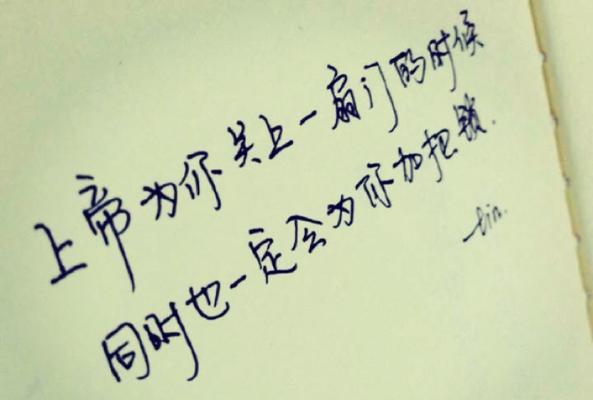 上帝为你关上一扇门的时候
同时也一定会为你加把锁.